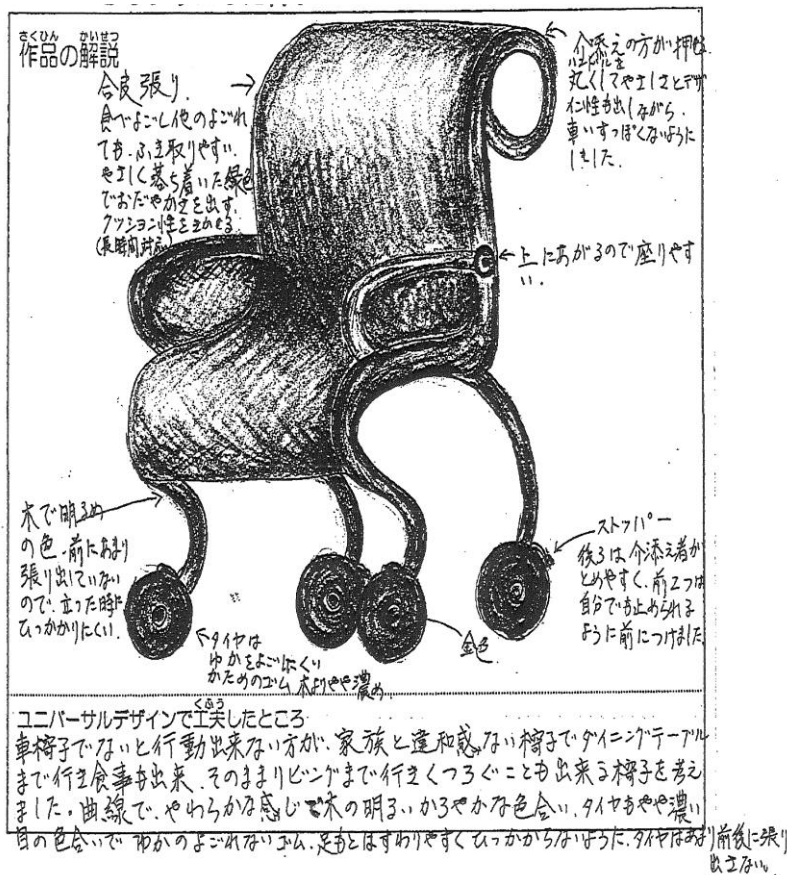 さくひん かいせつ
作品の解説
合皮張り.
食べよごし他のよごれ
ても.ふき取りやすい.
やさしく落ち着いた緑色
でおだやかさを出す.
クッション性をきかせる
(長時間対応)
介添えの方が押せる
ハンドルを
丸くしてやさしさとデザ
イン性も出しながら.
車いすっぽくないように
しました.
←上にあがるので座りやす
い.
木で明るめ
の色.前にあまり
張り出していない
ので.立った時に
ひっかかりにくい.
タイヤは
ゆかをよごしにくい
かためのゴム 木よりやや濃め.
金色
ストッパー
後ろは介添え者が
とめやすく、前2つは
自分でも止められる
ように前につけました
くふう
ユニバーサルデザインで工夫したところ
車椅子でないと行動出来ない方が、家族と違和感ない椅子でダイニングテーブル
まで行き食事も出来、そのままリビングまで行きくつろぐことも出来る椅子を考え
ました.曲線で、やわらかな感じで木の明るいかろやかな色合い、タイヤもやや濃い
目の色合いでゆかのよごれないゴム、足もとはすわりやすくひっかからないように、タイヤはあまり前後に張り
出さない。